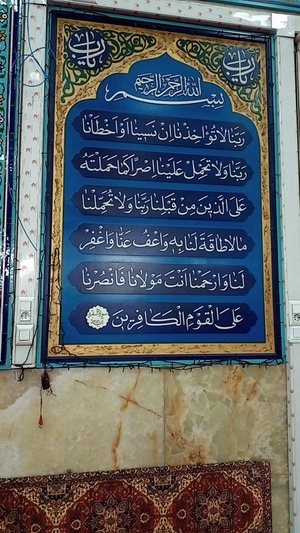 یا رب
یا رب
بسم الله الرحمن الرحیم
رَبَّنَا لَا تُؤَاخِذْنَا اِنْ نَسِینَا اَوْ اَخْطَأْنَا
رَبَّنَا وَلَا تَحْمِلْ عَلَیْنَا اِصْرًا کَمَا حَمَلْتَهُ
عَلَی الَّذِینَ مِنْ قَبْلِنَا رَبَّنَا وَلَا تُحَمِّلْنَا
مَا لَا طَاقَةَ لَنَا بِهِ وَاعْفُ عَنَّا وَاغْفِرْ
لَنَا وَارْحَمْنَا اَنْتَ مَوْلَانَا فَانْصُرْنَا
عَلَی الْقَوْمِ الْکَافِرِینَ